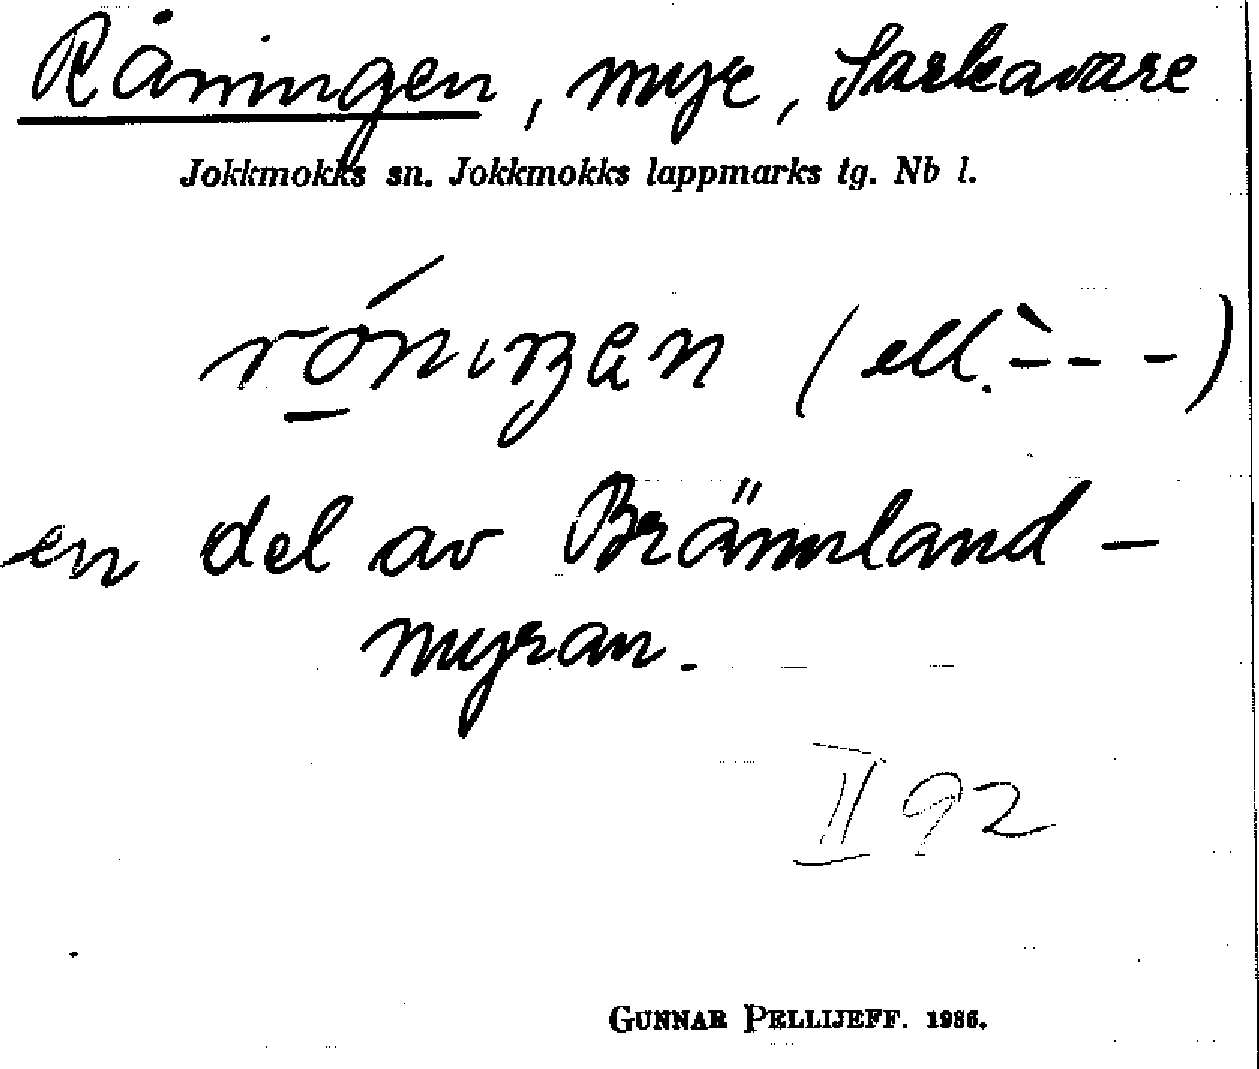 Råningen, myr, Sarkavare
Jokkmokks sn. Jokkmokks lappmarks tg. Nb l.
(ell. ` - - -)
en del av Brännland-
myran.
II 92
GUNNAR PELLIJEFF. 1986.